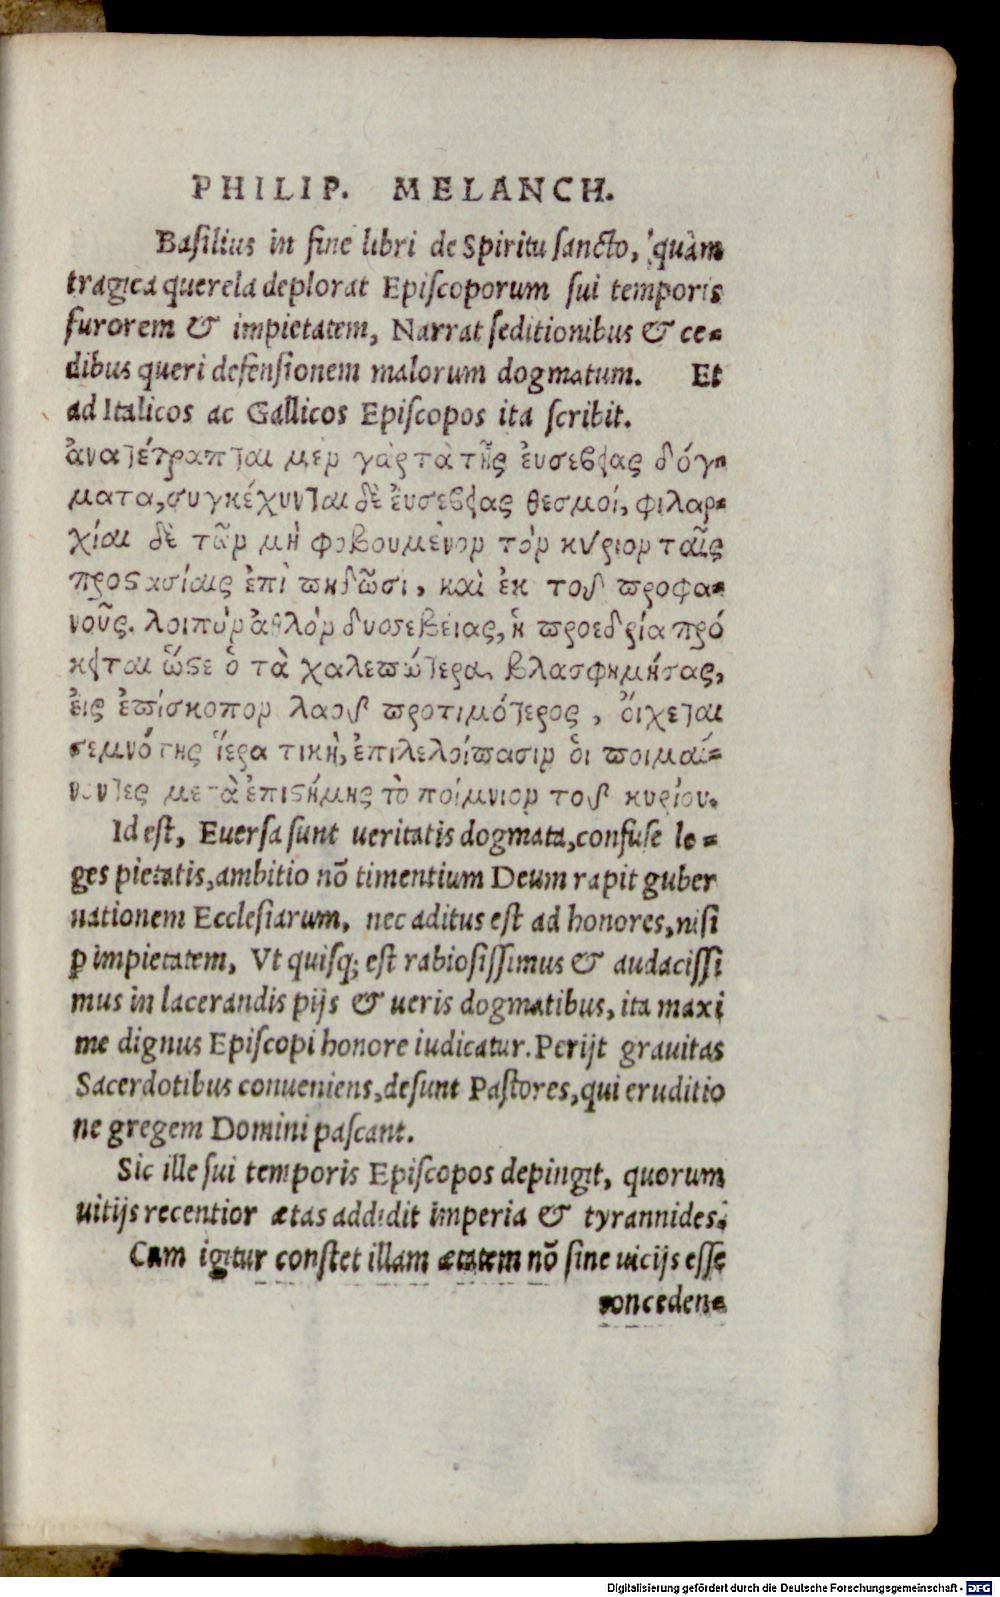 PHILIP. MELANCH.
Basilius in fine libri de Spiritu sancto, quàm
tragica querela deplorat Episcoporum sui temporis
furorem & impietatem, Narrat seditionibus & ce-
dibus queri defensionem malorum dogmatum. Et
ad Italicos ac Gallicos Episcopos ita scribit.
ἀνατέτραπται μὲν γὰρ τὰ τῆς ἐυσεβείας δόγ-
ματα, συγκέχυνται δὲ ἐυσεβείας θεσμοί, φιλαρ-
χίαι δὲ τῶν μὴ φοβουμένον τὸν κύριον ταῖς
προστασίαις ἐπὶ πηδῶσι, καὶ ἐκ τοῦ προφα-
νοῦς. λοιπὸν ἀθλὸν δυοσεβείας, ἡ προεδρία πρό
κειται ὥστε ὁ τὰ χαλεπώτερα βλασφημήσας,
ἐις ἐπίσκοπον λαοῦ προτιμότερος, ὄιχεται
σεμνότης ἵερα τικὴ, ἐπιλελοίπασιν ὁι ποιμαί-
νοντες μετὰ ἐπιστήμης τὸ ποίμνιον τοῦ κυρίου.
Id est, Euersa sunt ueritatis dogmata, confuse le-
ges pietatis, ambitio nō timentium Deum rapit guber
nationem Ecclesiarum, nec aditus est ad honores, nisi
ꝑ impietatem, Vt quisq; est rabiosissimus & audacissi
mus in lacerandis pijs & ueris dogmatibus, ita maxi
me dignus Episcopi honore iudicatur. Perijt grauitas
Sacerdotibus conueniens, desunt Pastores, qui eruditio
ne gregem Domini pascant.
Sic ille sui temporis Episcopos depingit, quorum
uitijs recentior ætas addidit imperia & tyrannides.
Cum igitur constet illam ætatem nō sine uicijs esse
conceden-
Digitalisierung gefördert durch die Deutsche Forschungsgemeinschaft - DFG